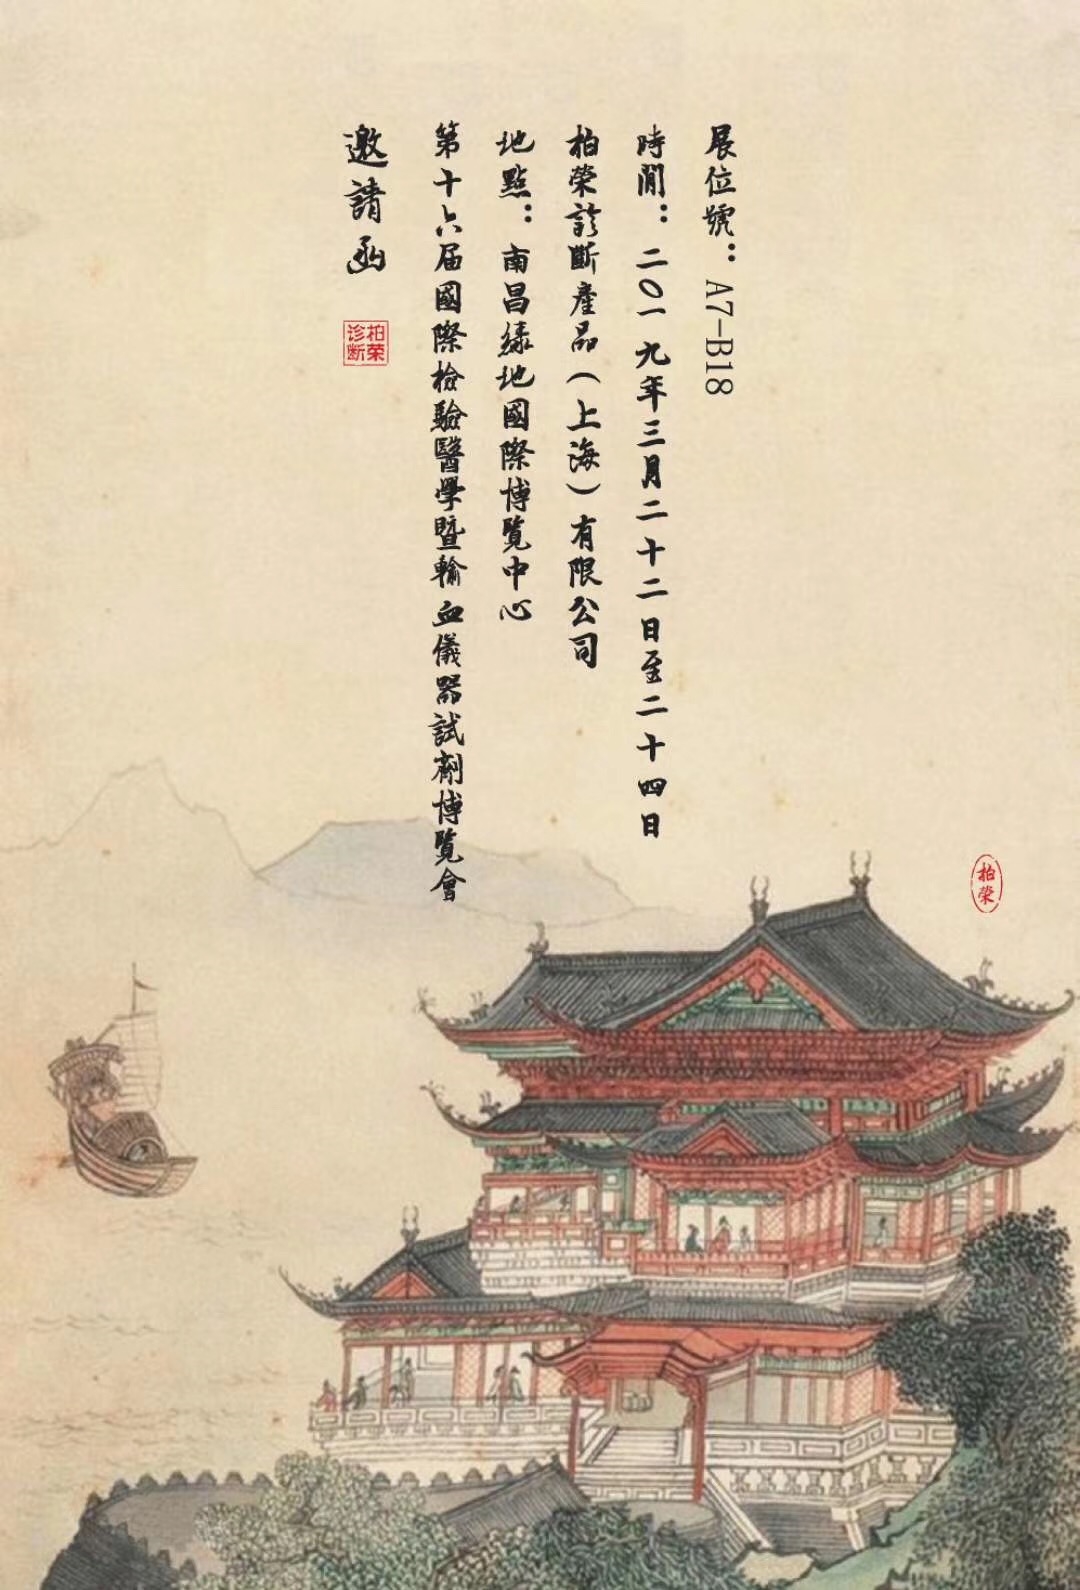 展位號：A7-B18
時間：二〇一九年三月二十二日至二十四日
柏榮診斷產品（上海）有限公司
地點：南昌綠地國際博覽中心
第十六届國際檢驗醫學暨輸血儀器試劑博覽會
邀請函
柏荣诊断
柏榮